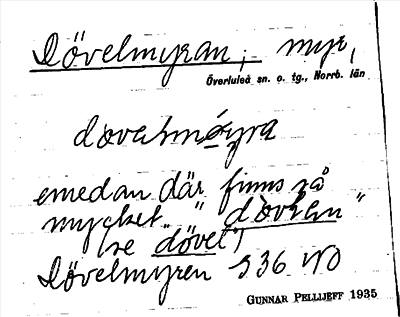 Dövelmyran, myr,
Överluleå sn. o. tg., Norrb. län
dovelmöyra
emedan där finns så
mycket "dövlen"
(se "dövel")
Dövelmyren 936 NO
GUNNAR PELLIJEFF 1935